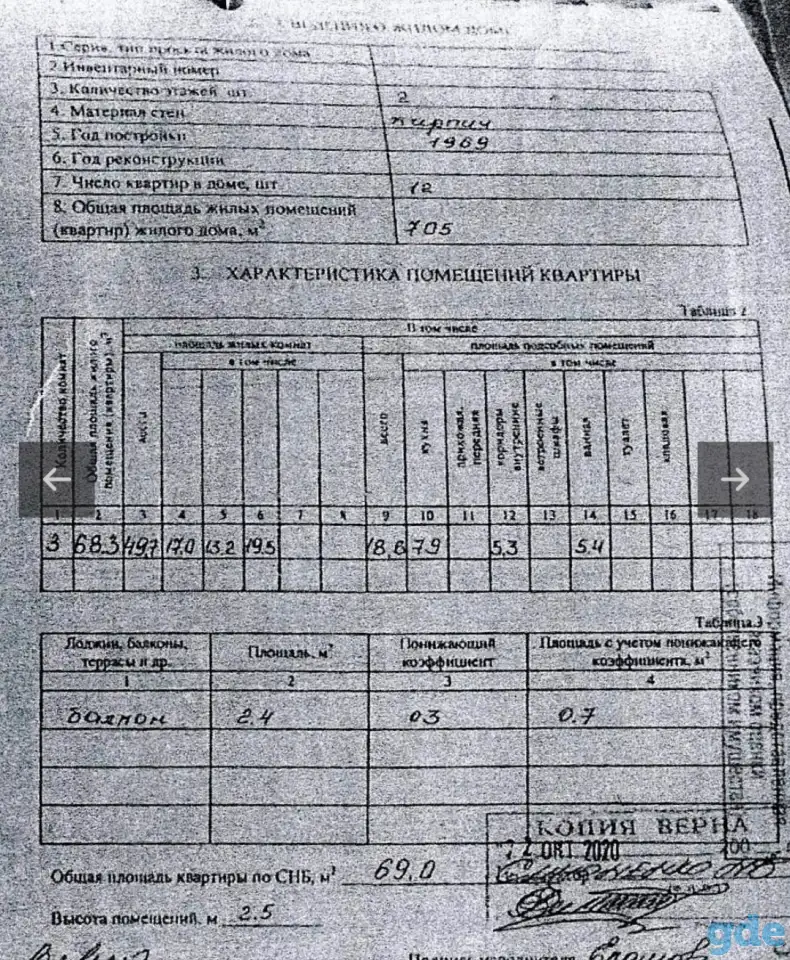 1. Серия, тип проекта жилого дома
2. Инвентарный номер
3. Количество этажей шт. 2
4. Материал стен кирпич
5. Год постройки 1969
6. Год реконструкции
7. Число квартир в доме, шт 12
8. Общая площадь жилых помещений
(квартир) жилого дома, м² 705
3. ХАРАКТЕРИСТИКА ПОМЕЩЕНИЙ КВАРТИРЫ
Таблица 2
Количество комнат
Общая площадь жилого
помещения (квартиры), м²
В том числе
площадь жилых комнат
площадь подсобных помещений
в том числе
в том числе
всего
всего
кухня
прихожая,
передняя
коридоры
внутренние
встроенные
шкафы
ванная
туалет
кладовая
1 2 3 4 5 6 7 8 9 10 11 12 13 14 15 16 17 18
3 68.3 49,7 17.0 13.2 19.5 18,6 7.9 5.3 5.4
Таблица 3
Лоджии, балконы,
террасы и др.
Площадь, м²
Понижающий
коэффициент
Площадь с учетом понижающего
коэффициента, м²
1 2 3 4
балкон 2.4 0.3 0.7
КОПИЯ ВЕРНА
2 ОКТ 2020
200
Общая площадь квартиры по СНБ, м² 69.0
Высота помещений, м 2.5
gde